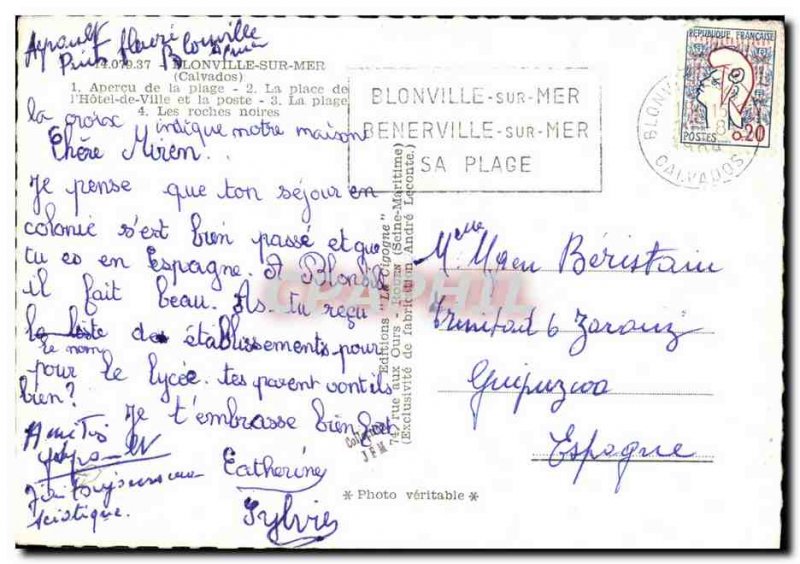 Ayrault
Blonville
14.079.37 BLONVILLE-SUR-MER
(Calvados)
1. Aperçu de la plage - 2. La place de
l'Hôtel-de-Ville et la poste - 3. La plage
4. Les roches noires
la croix indique notre maison
Chère Miren.
Je pense que ton séjour en
colonie s'est bien passé et que
tu es en Espagne. A Blonville
il fait beau. As-tu reçu
la liste des établissements pour
le nom
pour le lycée. tes parent vont ils
bien?
Je t'embrasse bien fort
Amitiés
J'ai toujours ma
sciatique.
Catherine
Sylvie
BLONVILLE-SUR-MER
BENERVILLE-SUR-MER
SA PLAGE
REPUBLIQUE FRANÇAISE
POSTES 0.20
BLONV
CALVADOS
Editions "La Cigogne"
74, rue aux Ours - ROUEN (Seine-Maritime)
(Exclusivité de fabrication André Leconte.)
Collection
J F M
Melle Miren Béristain
Trinitad 6 Zarauz
Guipuzcoa
Espagne
* Photo véritable *
CPAPHIL